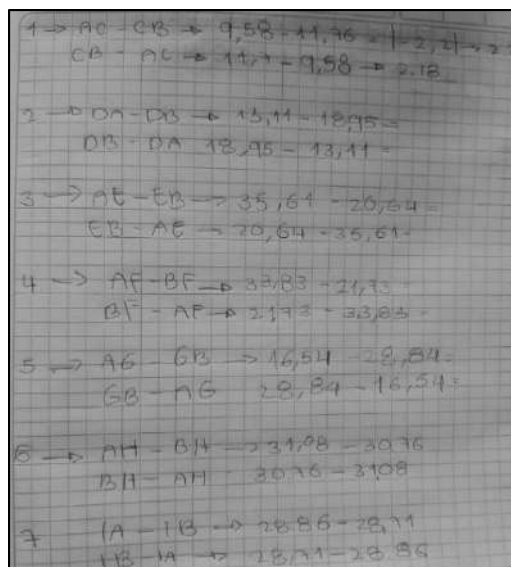 1 → AC - CB → 9,58 - 11,76 = |-2,2| →
CB - AC → 11,7 - 9,58 → 2.18
2 → DA - DB → 13,11 - 18,95 =
DB - DA 18,95 - 13,11 =
3 → AE - EB → 35,61 - 20,64 =
EB - AE → 20,64 - 35,61 -
4 → AF - BF → 33,83 - 21,73 -
BF - AF → 21,73 - 33,83 -
5 → AG - GB → 16,54 - 28,84 =
GB - AG 28,84 - 16,54 =
6 → AH - BH → 31,08 - 30,76
BH - AH 30,76 - 31,08
7 IA - IB → 28,86 - 28,71
IB - IA → 28,71 - 28,86